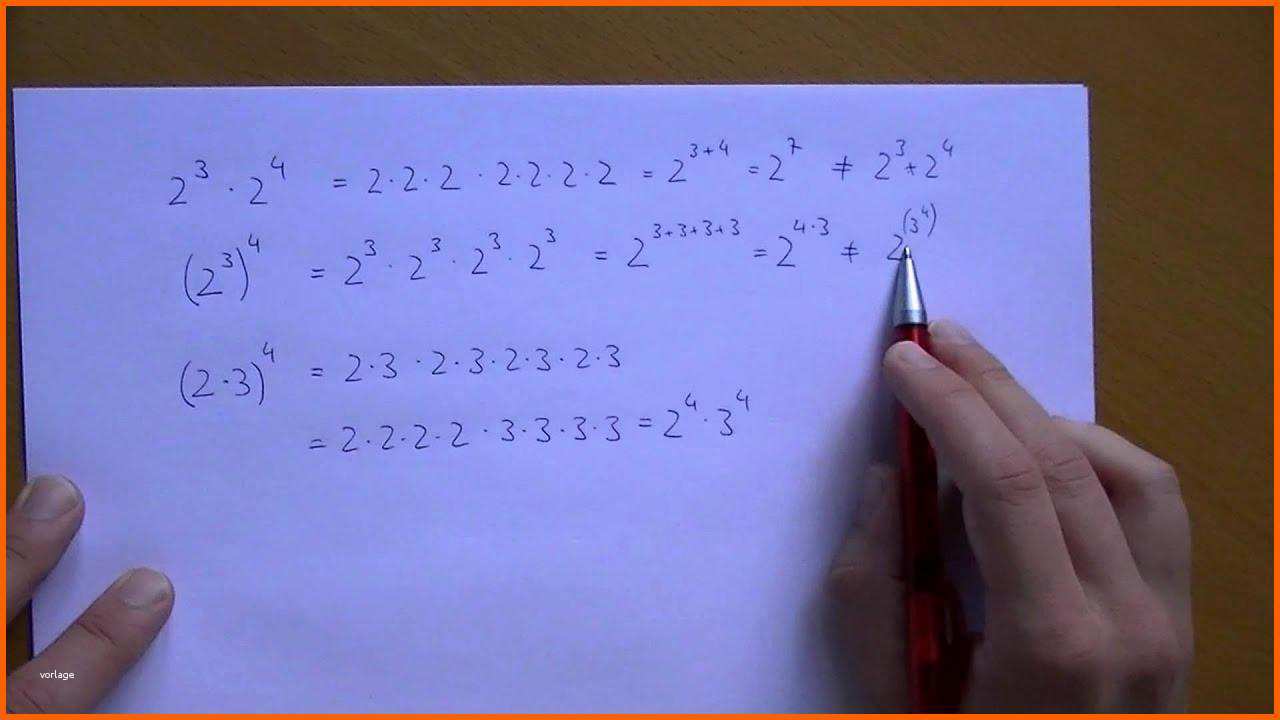 2³ · 2⁴ = 2·2·2 · 2·2·2·2 = 2³⁺⁴ = 2⁷ ≠ 2³+2⁴
(2³)⁴ = 2³ · 2³ · 2³ · 2³ = 2³⁺³⁺³⁺³ = 2^(4·3) ≠ 2^(3⁴)
(2·3)⁴ = 2·3 ·2·3·2·3·2·3
= 2·2·2·2 ·3·3·3·3 = 2⁴·3⁴
vorlage